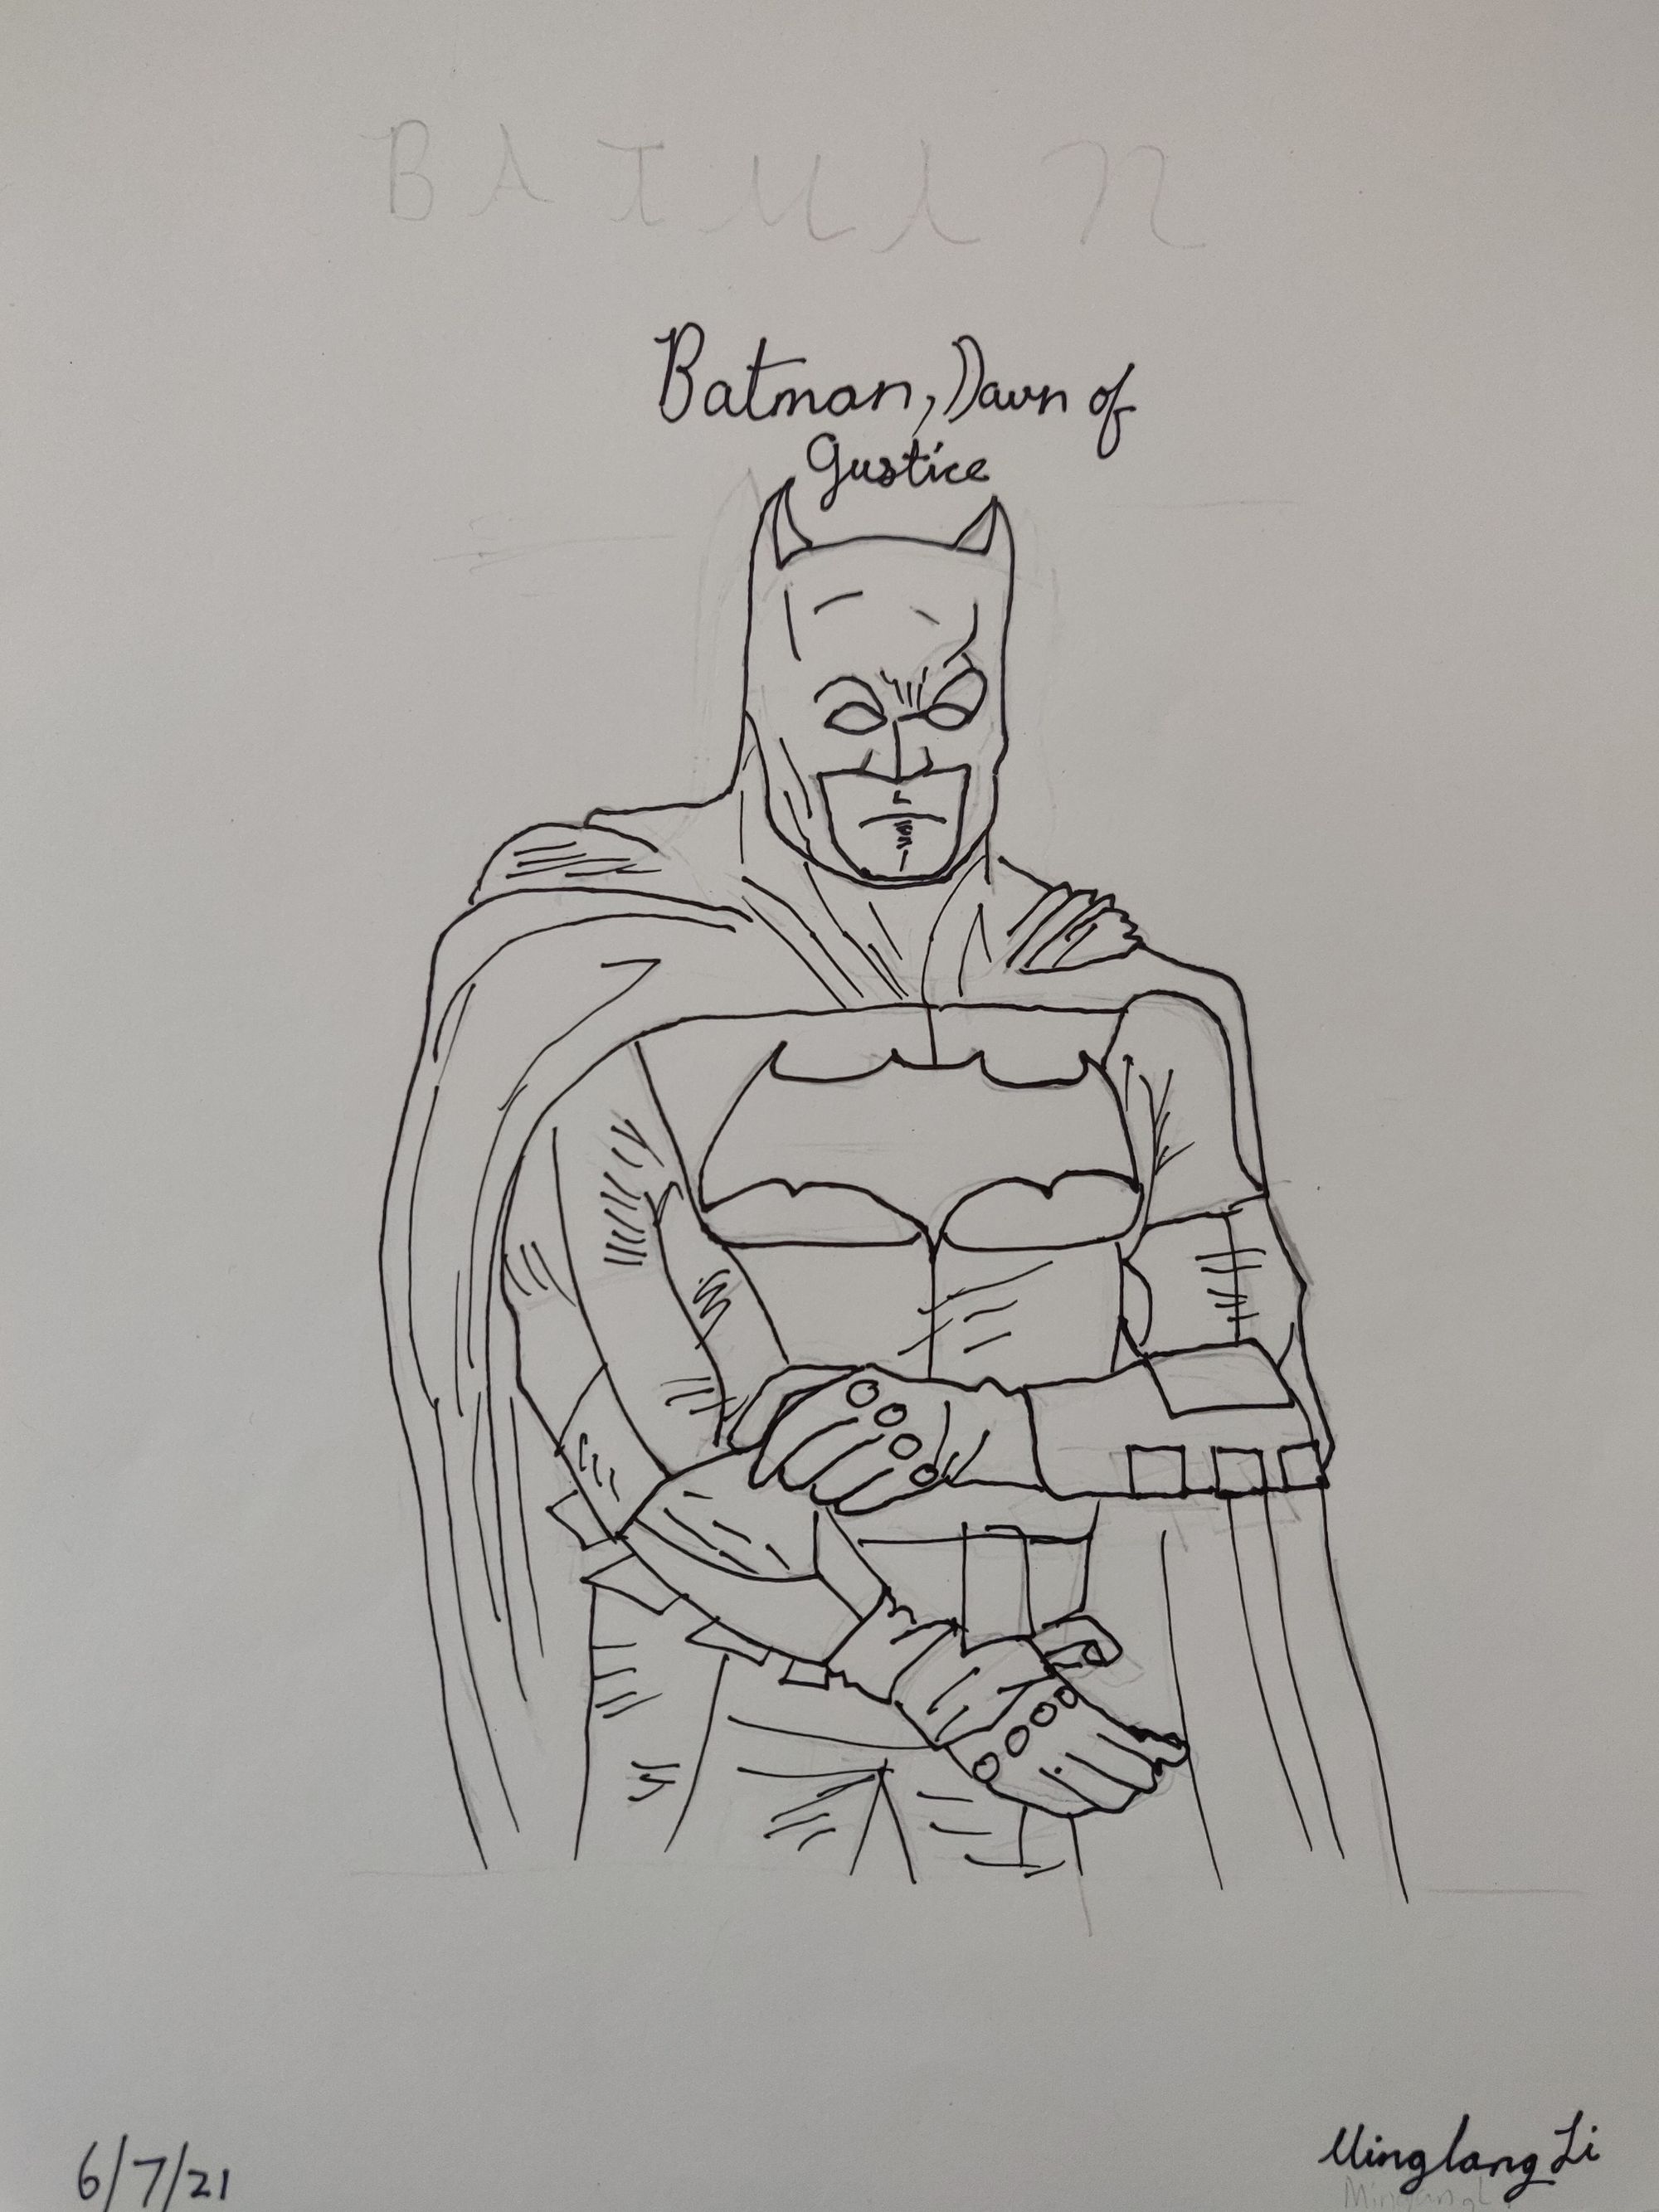 BATMAN
Batman, Dawn of
Justice
6/7/21
Minglang Li